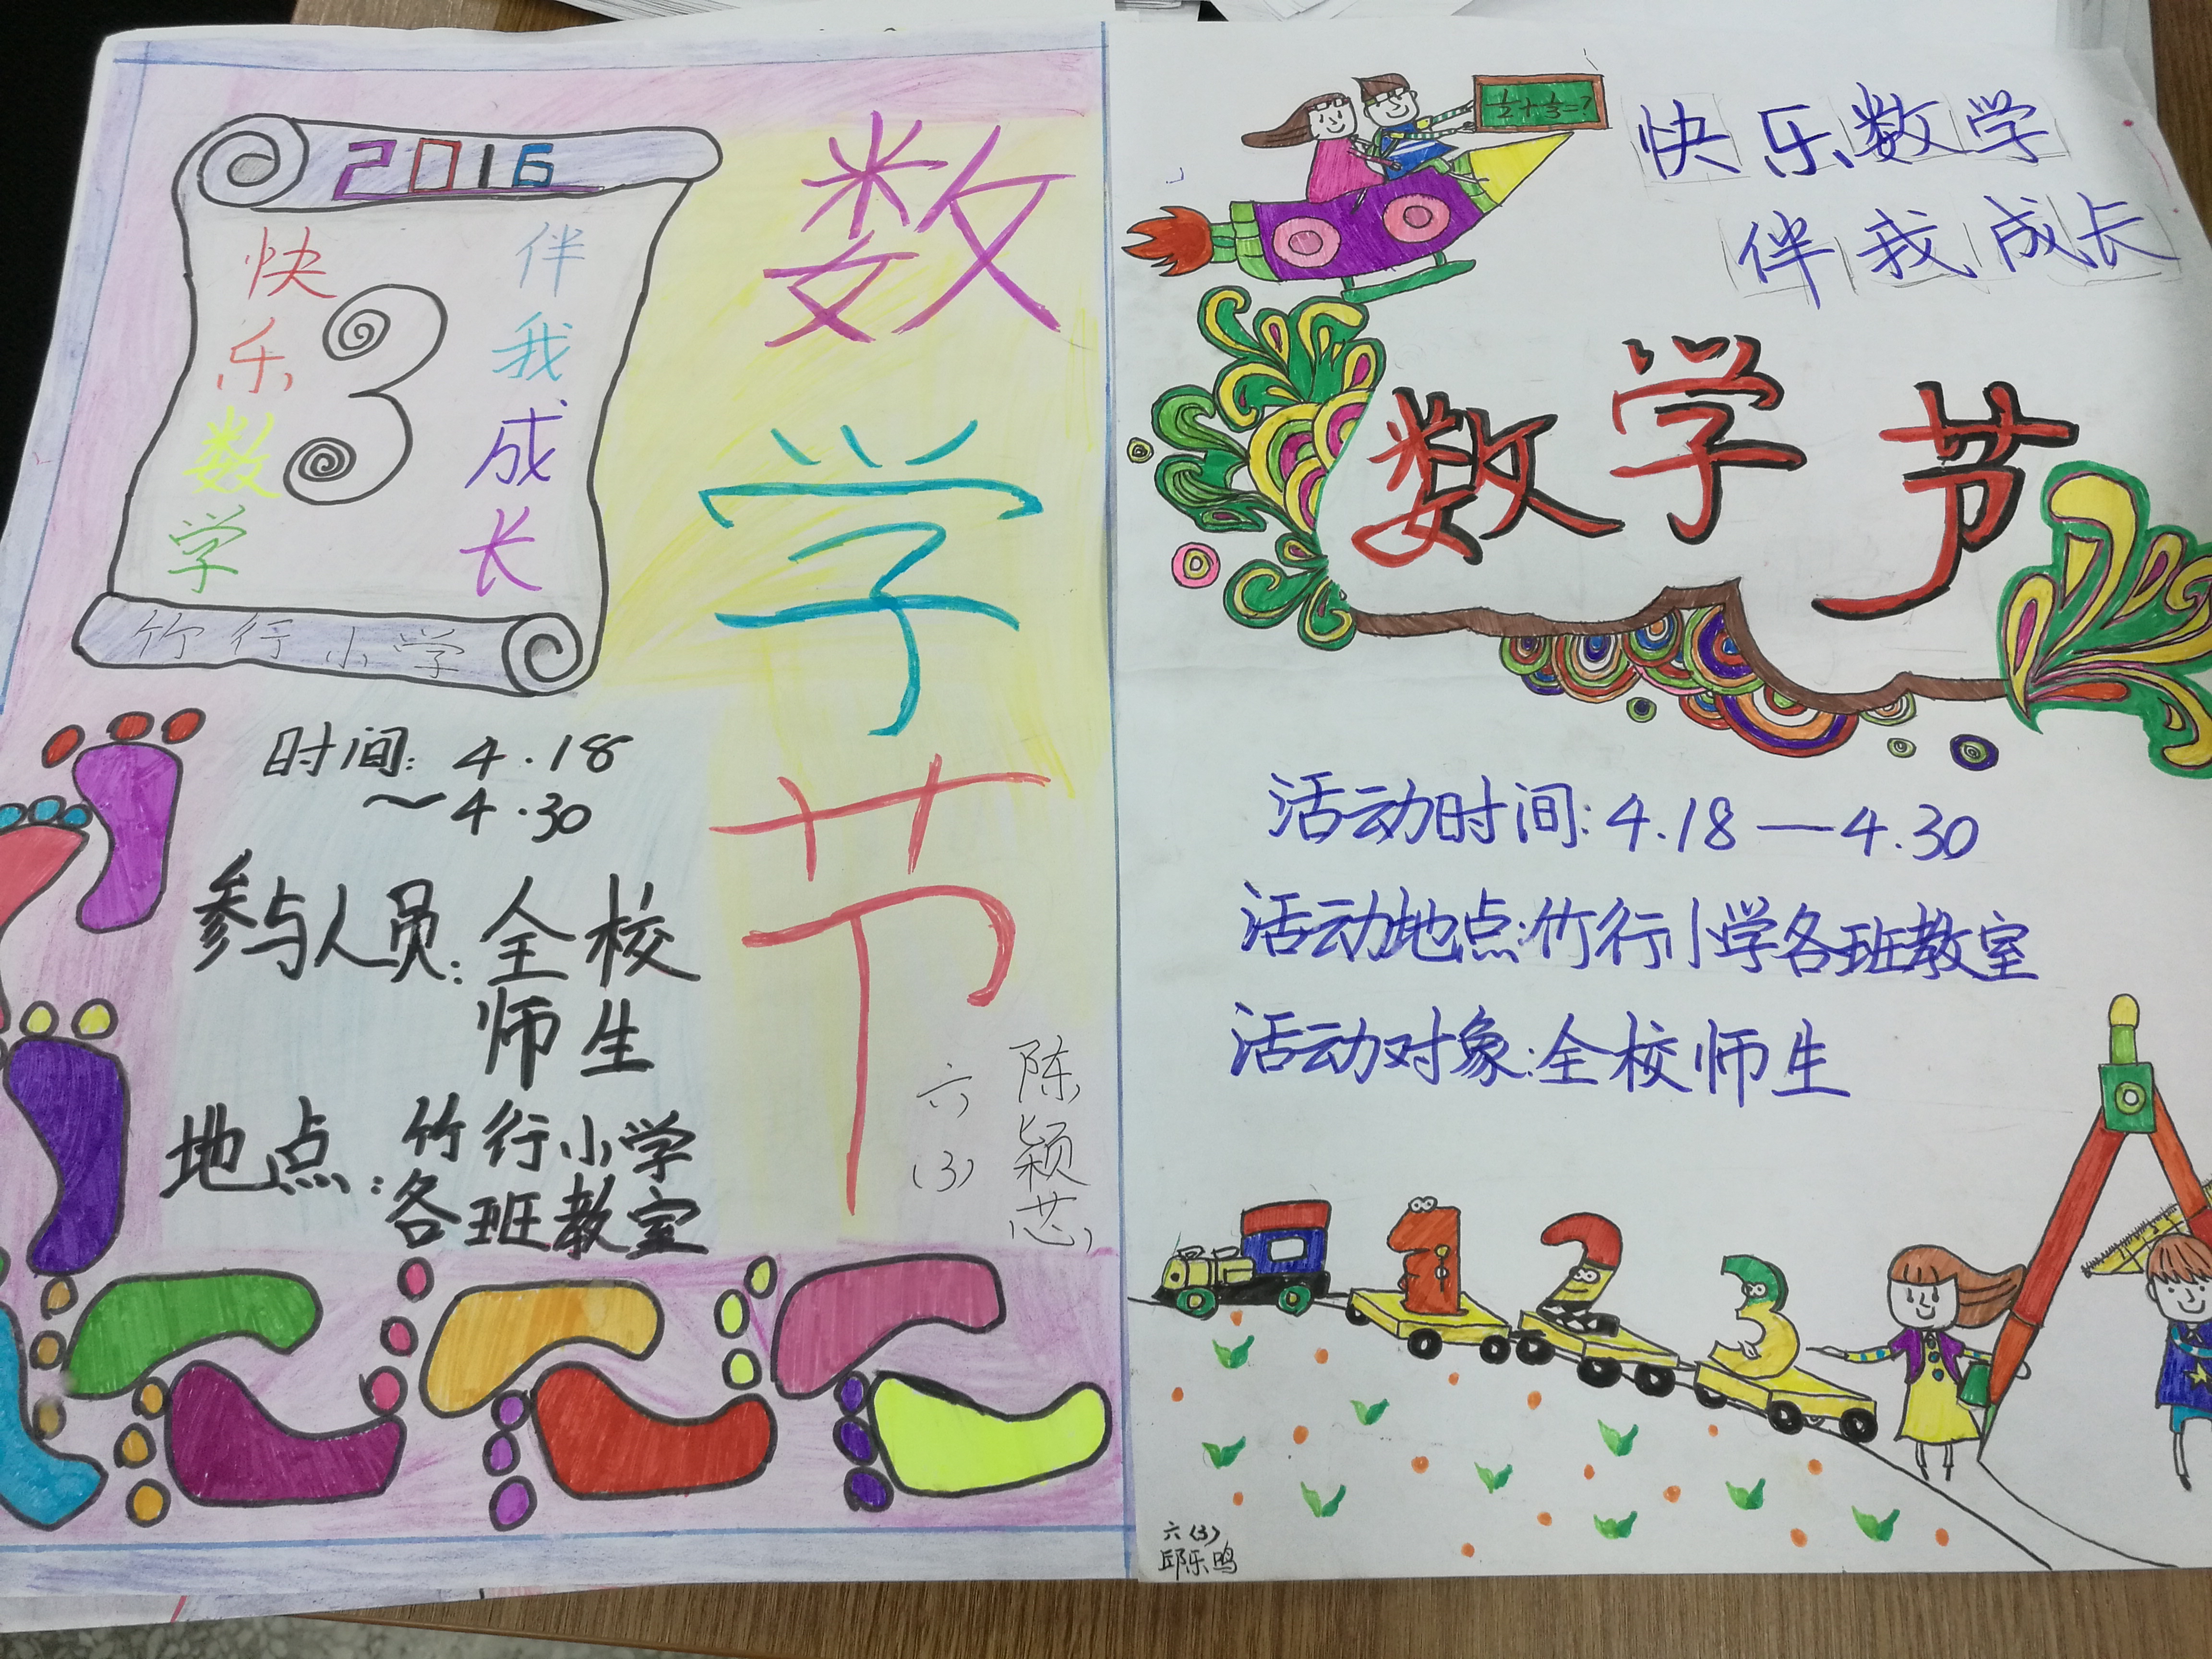 2016
快乐数学
3
伴我成长
竹行小学
数学节
时间：4.18
～4.30
参与人员：全校
师生
地点：竹行小学
各班教室
六（3）
陈颖芯
1/2+1/3=?
快乐数学
伴我成长
数学节
活动时间：4.18—4.30
活动地点：竹行小学各班教室
活动对象：全校师生
1 2 3
六（3）
邱乐鸣